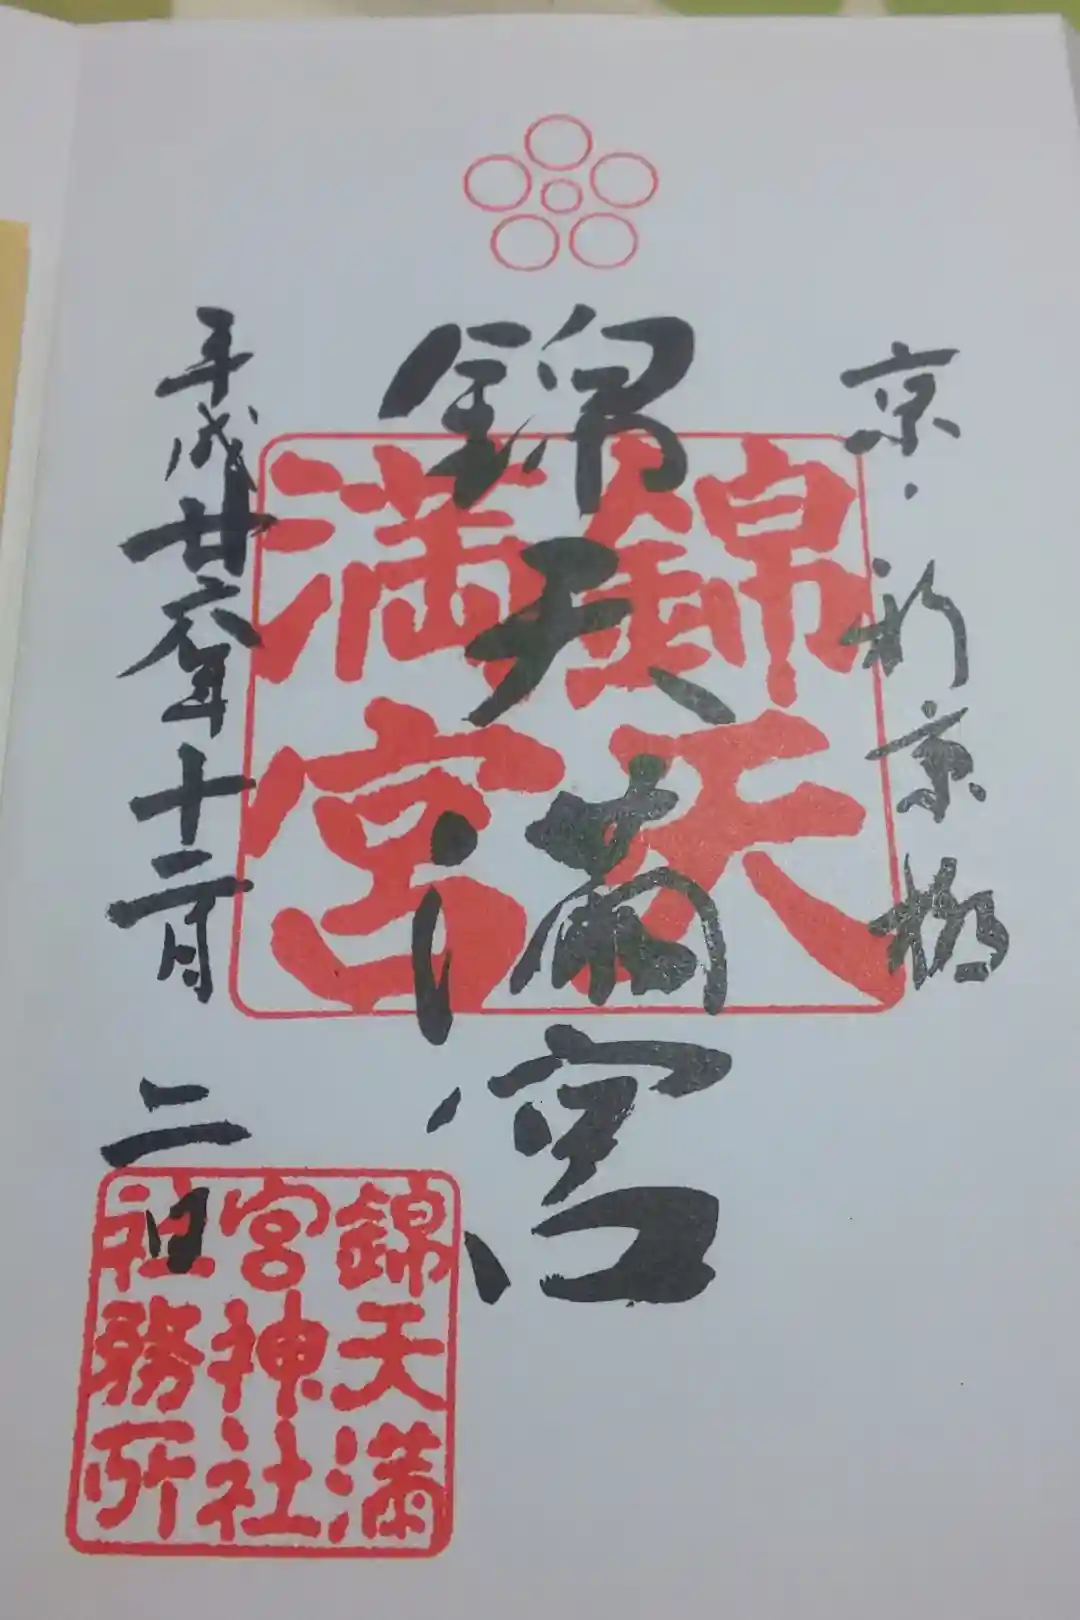 京・新京極
錦天満宮
錦天
満宮
平成廿六年十二月二日
錦天満
宮神社
社務所